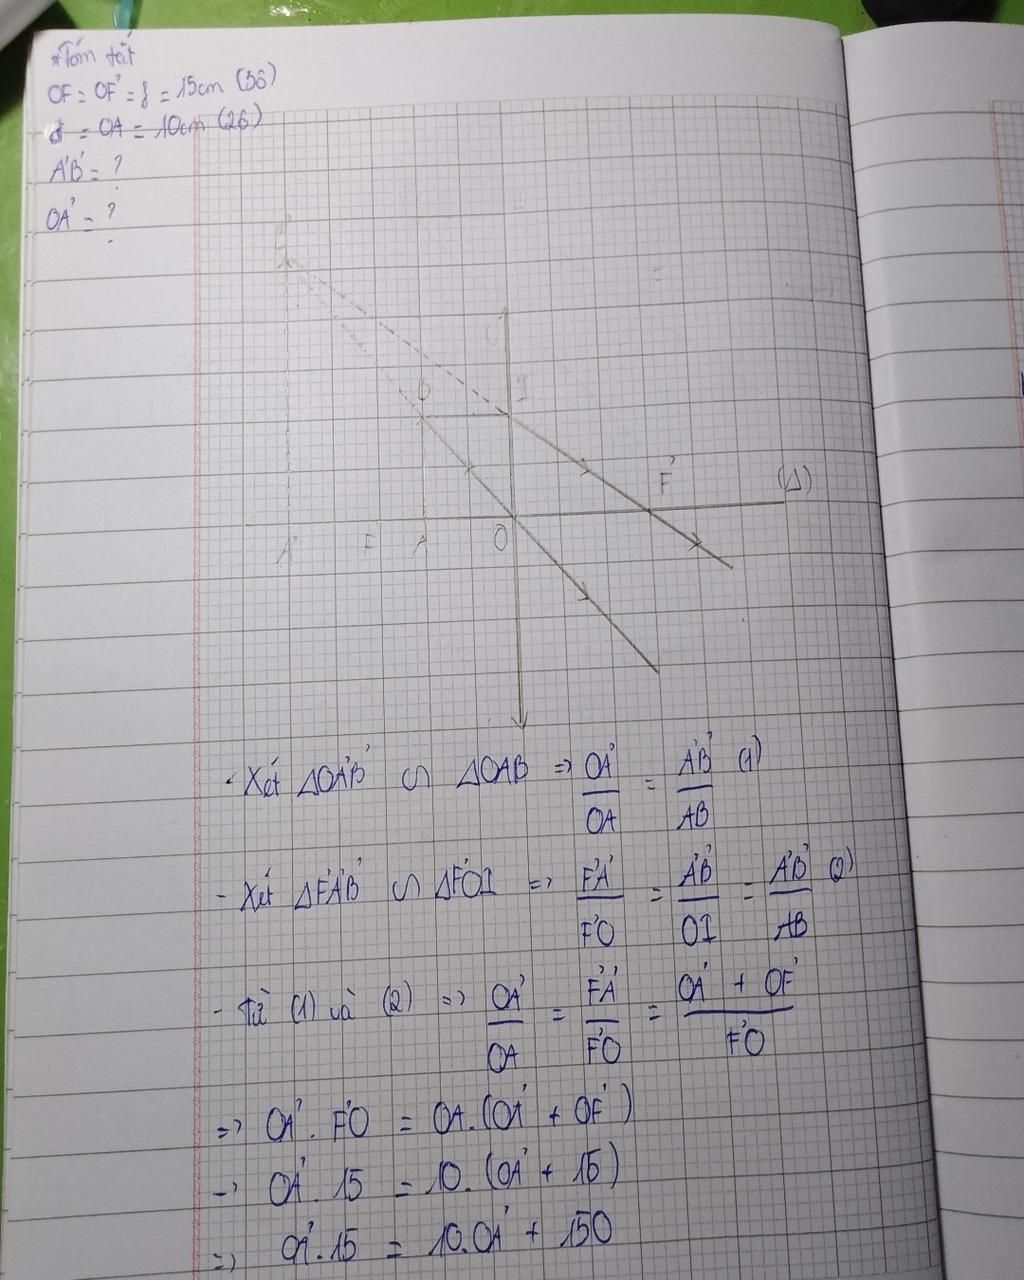 *Tóm tắt
OF = OF' = f = 15cm (3ô)
d = OA = 10cm (2ô)
A'B' = ?
OA' = ?
B I
F' (Δ)
A' F A O
- Xét ΔOA'B' ∽ ΔOAB => OA'/OA = A'B'/AB (1)
- Xét ΔF'A'B' ∽ ΔF'OI => F'A'/F'O = A'B'/OI = A'B'/AB (2)
- Từ (1) và (2) => OA'/OA = F'A'/F'O = OA' + OF'/F'O
=> OA' . F'O = OA.(OA' + OF')
=> OA' . 15 = 10.(OA' + 15)
=> OA'.15 = 10.OA' + 150